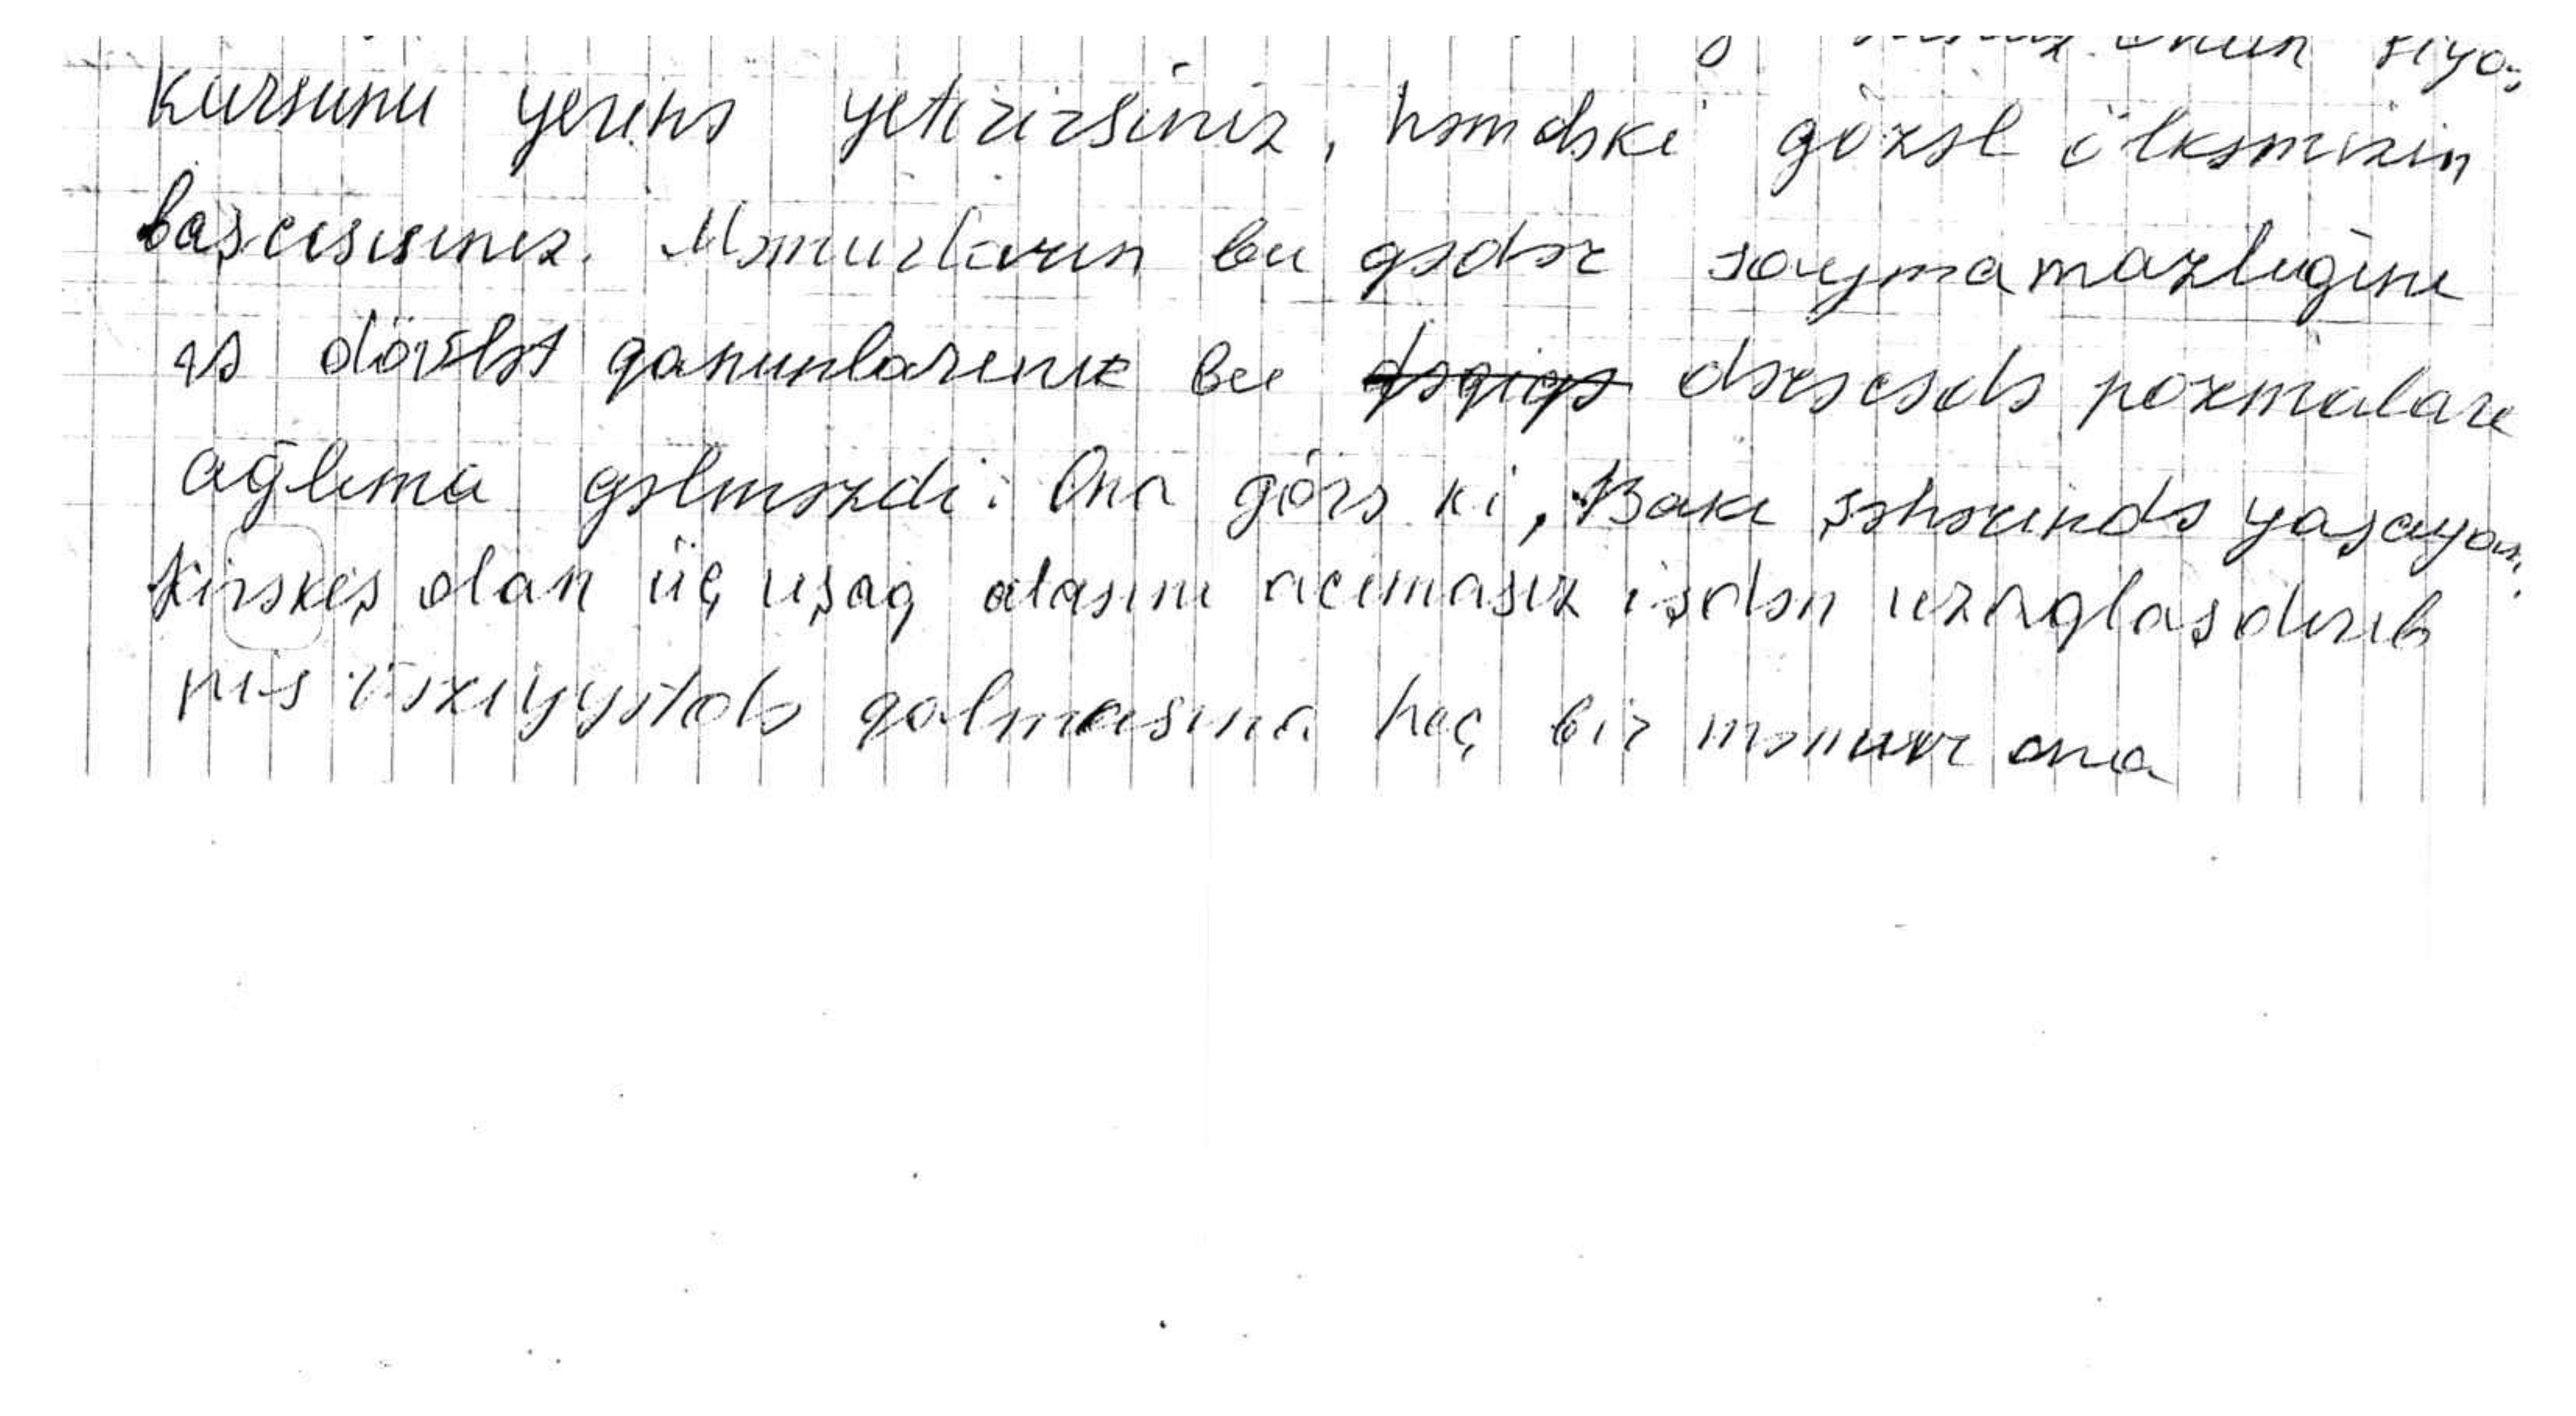 onun siya-
kursunu yerinə yetirirsiniz, həmdəki gözəl ölkəmizin
başçısısınız. Məmurların bu qədər saymamazlığını
və dövlət qanunlarını bu dərəcədə pozmaları
ağlıma gəlməzdi. Ona görə ki, Bakı şəhərində yaşayan,
kirəkeş olan üç uşaq atasını acımasız işdən uzaqlaşdırıb
pis vəziyyətdə qalmasına heç bir məmur ona